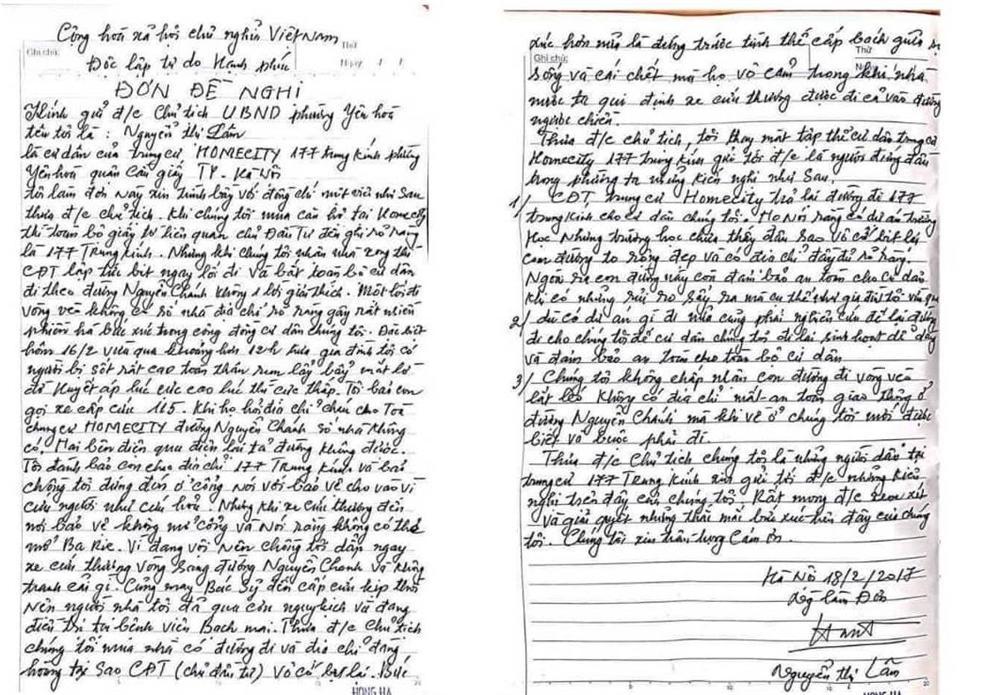 Cộng hoà xã hội chủ nghĩa Việt Nam
Ghi chú:
Thứ
Độc lập tự do Hạnh phúc
Ngày
ĐƠN ĐỀ NGHỊ
Kính gửi đ/c Chủ tịch UBND phường Yên hoà
tên tôi là: Nguyễn thị Lân
là cư dân của trung cư HOMECITY 177 trung Kính phường
Yên hoà quận cầu giấy TP. Hà Nội
tôi làm đơn này xin trình bày với đồng chí một việc như sau
thưa đ/c chủ tịch. Khi chúng tôi mua căn hộ tại Homecity
thì toàn bộ giấy tờ liên quan chủ Đầu Tư đều ghi rõ ràng
là 177 Trung Kính. Nhưng khi chúng tôi nhận nhà xong thì
CĐT lập tức bịt ngay lối đi và bắt toàn bộ cư dân
đi theo đường Nguyễn Chánh không 1 lời giải thích. Một lối đi
vòng vèo không có số nhà địa chỉ rõ ràng gây rất nhiều
phiền hà bức xúc trong cộng đồng cư dân chúng tôi. Đặc biệt
hôm 16/2 vừa qua khoảng hơn 12h trưa gia đình tôi có
người bị sốt rất cao toàn thân run lẩy bẩy mặt
đỏ Huyết áp lúc cực cao lúc thì cực thấp. Tôi bảo con
gọi xe cấp cứu 115. Khi họ hỏi địa chỉ cháu cho Toà
chung cư HOMECITY đường Nguyễn Chánh số nhà không
có. Hai bên điện qua điện lại tả đường không được.
Tôi đành bảo con cho địa chỉ 177 Trung Kính và bảo
chồng tôi đứng đón ở cổng Nói với bảo vệ cho vào vì
cứu người như cứu hoả. Nhưng khi xe cứu thương đến
nơi bảo vệ không mở cổng và Nói rằng không có thể
mở Ba Rie. Vì đang vội Nên chồng tôi dẫn ngay
xe cứu thương vòng sang đường Nguyễn Chánh và không
tranh cãi gì. Cũng may Bác Sỹ đến cấp cứu kịp thời
Nên người nhà tôi đã qua cơn nguy kịch và đang
điều trị tại bệnh viện Bạch mai. Thưa đ/c chủ tịch
chúng tôi mua nhà có đường đi và địa chỉ đàng
hoàng tại Sao CĐT (chủ đầu tư) Vô cớ bịt lối. Bức
HONG HA
xúc hơn nữa là đứng trước tình thế cấp bách giữa sự
Ghi chú:
Thứ
sống và cái chết mà họ vô cảm trong khi nhà
nước ta qui định xe cứu thương được đi cả vào đường
ngược chiều.
Thưa đ/c chủ tịch, tôi thay mặt tập thể cư dân trung cư
Homecity 177 trung kính gửi tới đ/c là người đứng đầu
trong phường ta những kiến nghị như sau.
1/ CĐT trung cư Homecity trả lại đường đi 177
trung Kính cho cư dân chúng tôi. Họ Nói rằng có dự án trường
Học Nhưng trường học chưa thấy đâu sao vô cớ bịt lối
con đường to rộng đẹp và có địa chỉ đầy đủ rõ ràng.
Ngoài ra con đường này còn đảm bảo an toàn cho cư dân
khi có những rủi ro sảy ra mà cụ thể như gia đình tôi vừa qua
2/ dù có dự án gì đi nữa cũng phải nghiên cứu để lại đường
đi cho chúng tôi để cư dân chúng tôi đi lại sinh hoạt dễ dàng
và đảm bảo an toàn cho toàn bộ cư dân
3/ Chúng tôi không chấp nhận con đường đi vòng vèo
lắt léo không có địa chỉ mất an toàn giao thông ở
đường Nguyễn Chánh mà khi về ở chúng tôi mới được
biết và buộc phải đi.
Thưa đ/c Chủ tịch chúng tôi là những người dân tại
trung cư 177 Trung Kính xin gửi tới đ/c những kiến
nghị trên đây của chúng tôi. Rất mong đ/c xem xét
và giải quyết những thắc mắc bức xúc trên đây của chúng
tôi. Chúng tôi xin trân trọng Cám ơn.
Hà Nội 18/2/2017
Ng làm Đơn
Nguyễn thị Lân
HONG HA